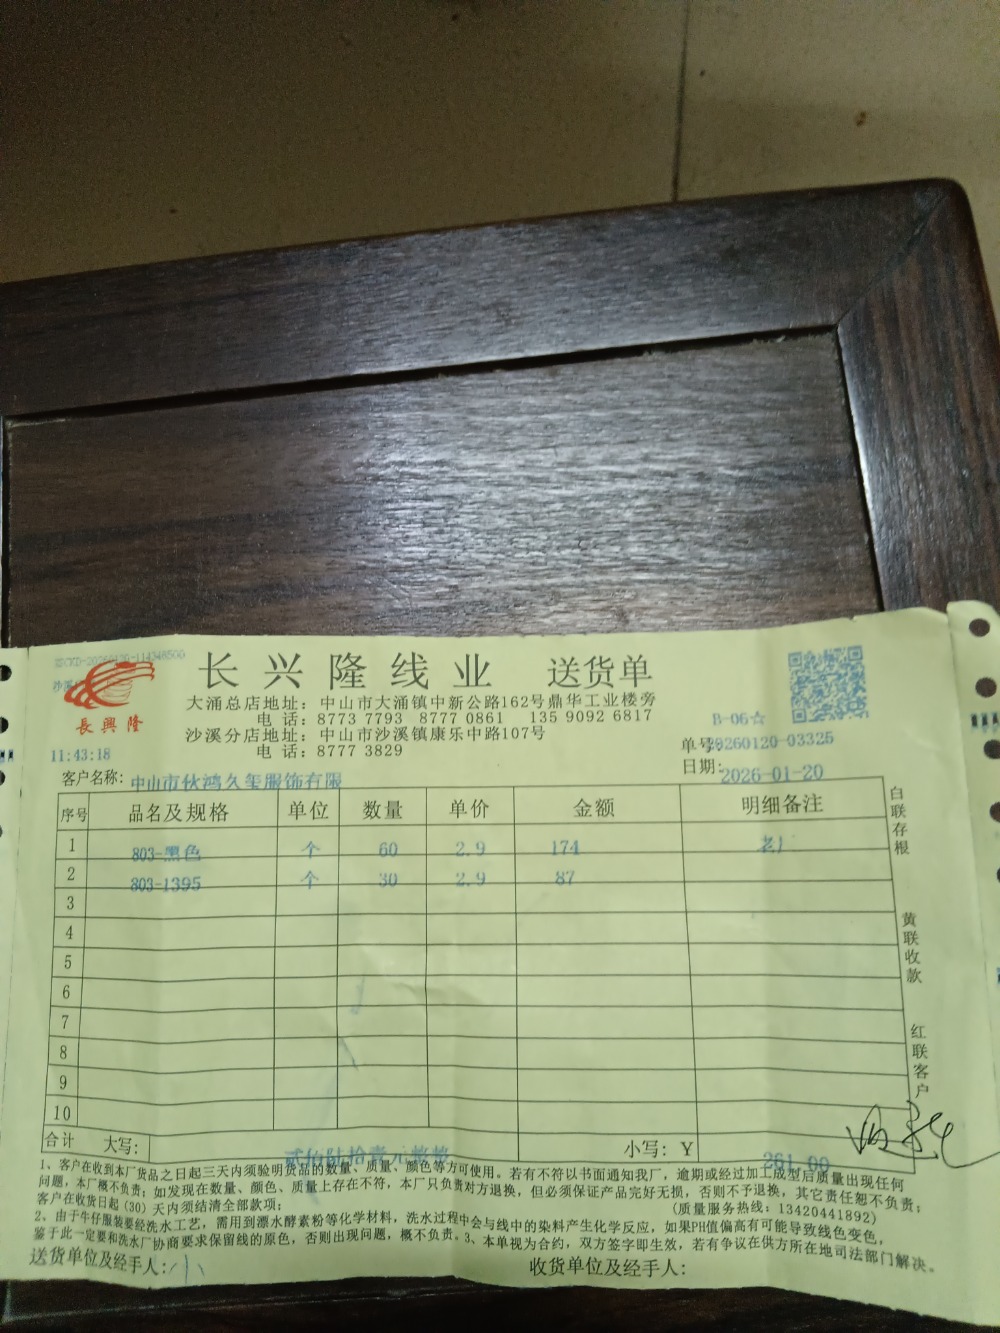 长兴隆线业 送货单
長興隆
大涌总店地址：中山市大涌镇中新公路162号鼎华工业楼旁
电 话：8773 7793 8777 0861 135 9092 6817
沙溪分店地址：中山市沙溪镇康乐中路107号
电 话：8777 3829
B-06☆
11:43:18
单号：20260120-03325
日期：2026-01-20
客户名称：中山市伙鸿久玺服饰有限
序号 品名及规格 单位 数量 单价 金额 明细备注
1 803-黑色 个 60 2.9 174
2 803-1395 个 30 2.9 87
3
4
5
6
7
8
9
10
合计 大写：贰佰陆拾壹元整 小写：Y 261.00
白联存根
黄联收款
红联客户
1、客户在收到本厂货品之日起三天内须验明货品的数量、质量、颜色等方可使用。若有不符以书面通知我厂，逾期或经过加工成型后质量出现任何
问题，本厂概不负责；如发现在数量、颜色、质量上存在不符，本厂只负责对方退换，但必须保证产品完好无损，否则不予退换，其它责任恕不负责；
客户在收货日起（30）天内须结清全部款项； （质量服务热线：13420441892）
2、由于牛仔服装要经洗水工艺，需用到漂水酵素粉等化学材料，洗水过程中会与线中的染料产生化学反应，如果PH值偏高有可能导致线色变色，
鉴于此一定要和洗水厂协商要求保留线的原色，否则出现问题，概不负责。3、本单视为合约，双方签字即生效，若有争议在供方所在地司法部门解决。
送货单位及经手人：小 收货单位及经手人：